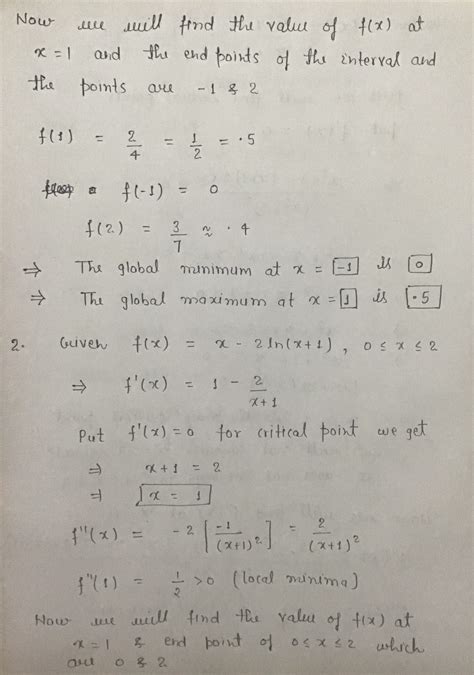 Now we will find the value of f(x) at
x = 1 and the end points of the interval and
the points are -1 & 2
f(1) = 2/4 = 1/2 = .5
f(-1) = 0
f(2) = 3/7 ≈ .4
⇒ The global minimum at x = -1 is 0
⇒ The global maximum at x = 1 is .5
2. Given f(x) = x - 2ln(x+1), 0 ≤ x ≤ 2
⇒ f'(x) = 1 - 2/(x+1)
Put f'(x) = 0 for critical point we get
⇒ x + 1 = 2
⇒ x = 1
f''(x) = -2[-1/(x+1)²] = 2/(x+1)²
f''(1) = 1/2 > 0 (local minima)
Now we will find the value of f(x) at
x = 1 & end point of 0 ≤ x ≤ 2 which
are 0 & 2